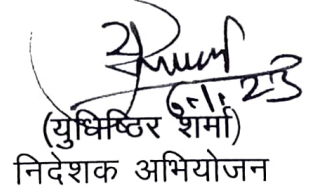 6.1.23
(युधिष्ठिर शर्मा)
निदेशक अभियोजन